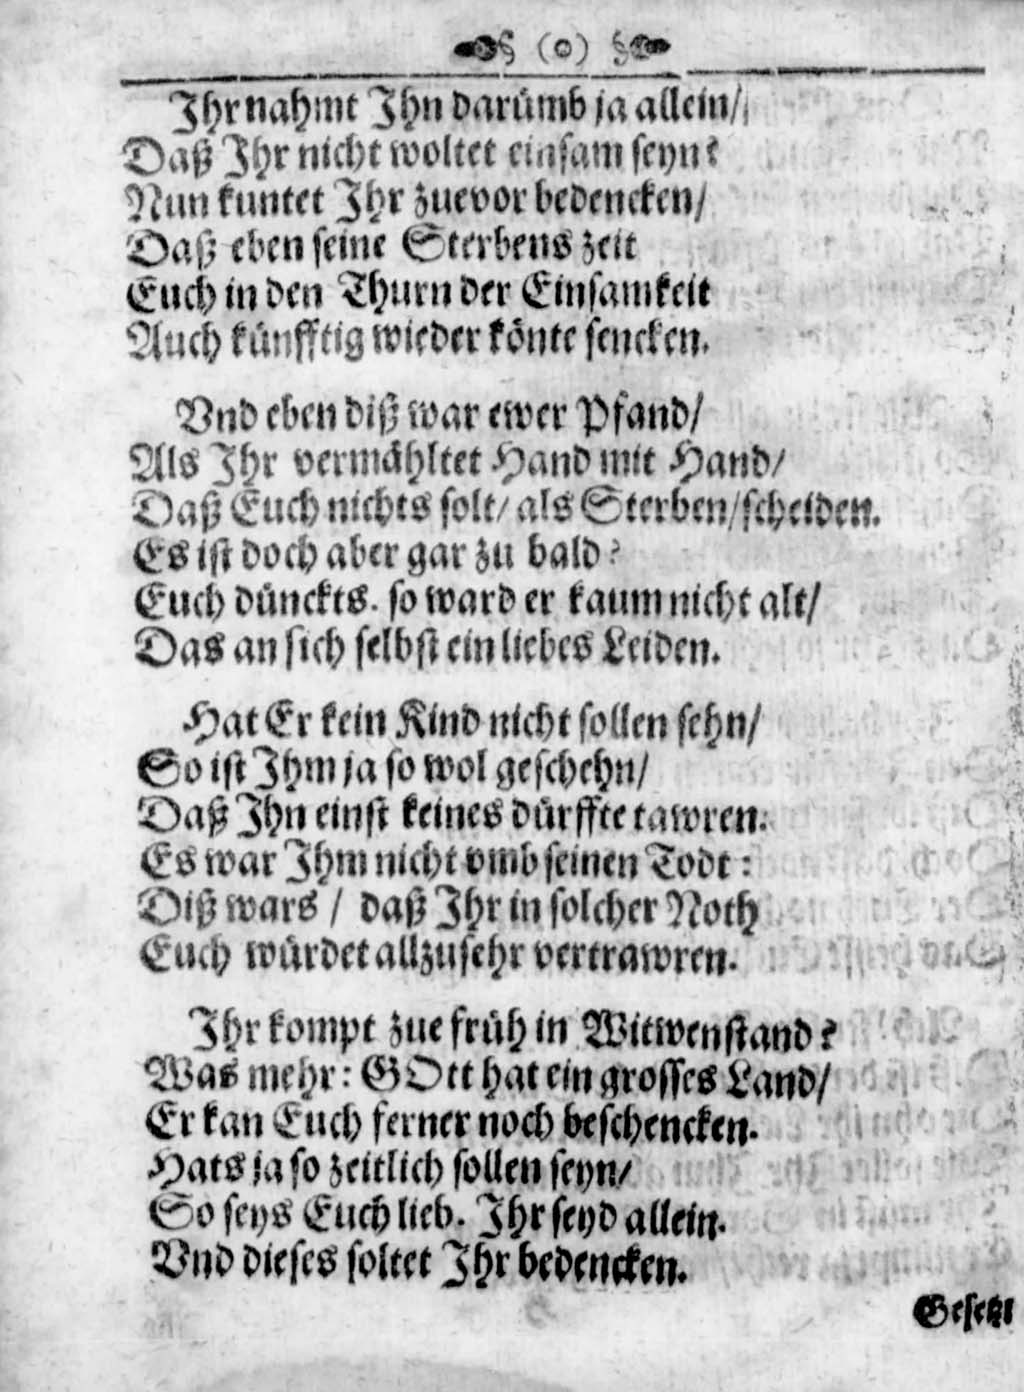 § (o) §
Ihr nahmt Ihn darümb ja allein/
Daß Ihr nicht woltet einsam seyn?
Nun kuntet Ihr zuevor bedencken/
Daß eben seine Sterbens zeit
Euch in den Thurn der Einsamkeit
Auch künfftig wieder könte sencken.
Vnd eben diß war ewer Pfand/
Als Ihr vermähltet Hand mit Hand/
Daß Euch nichts solt/ als Sterben/ scheiden.
Es ist doch aber gar zu bald?
Euch dünckts. so ward er kaum nicht alt/
Das an sich selbst ein liebes Leiden.
Hat Er kein Kind nicht sollen sehn/
So ist Ihm ja so wol geschehn/
Daß Ihn einst keines dürffte tawren.
Es war Ihm nicht vmb seinen Todt:
Diß wars / daß Ihr in solcher Noth
Euch würdet allzusehr vertrawren.
Ihr kompt zue früh in Witwenstand?
Was mehr: GOtt hat ein grosses Land/
Er kan Euch ferner noch beschencken.
Hats ja so zeitlich sollen seyn/
So seys Euch lieb. Ihr seyd allein.
Vnd dieses soltet Ihr bedencken.
Gesetzt